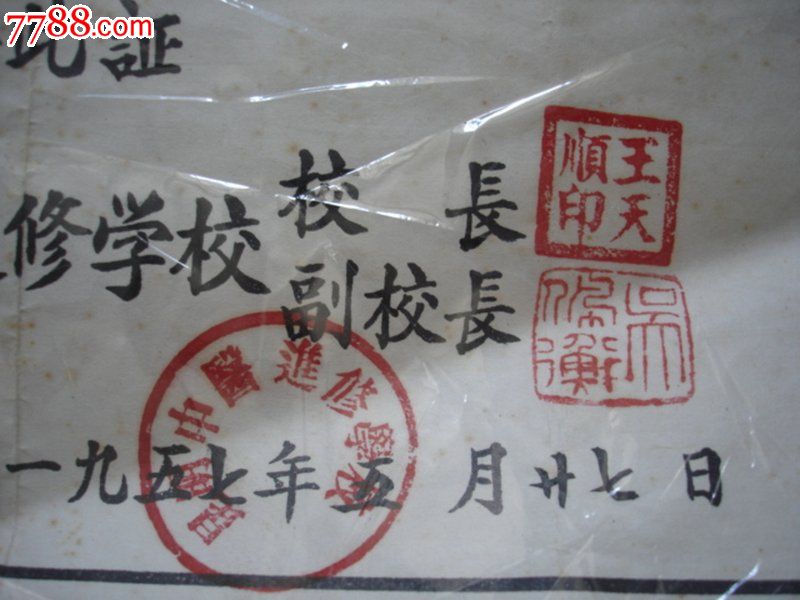 7788.com
此証
校 長
修学校
副校長
王天順印
吳佩衡
中醫進修學校
一九五七年五月廿七日